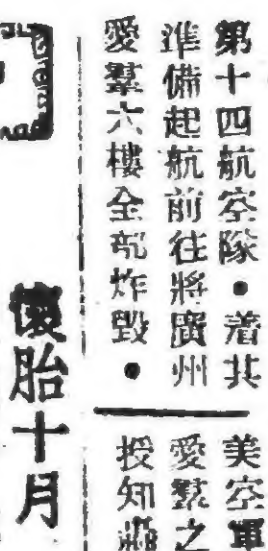 第十四航空隊●着共
準備起航前往將廣州
愛羣六樓全部炸毀●
美空軍
愛羣之
授知
懷胎十月